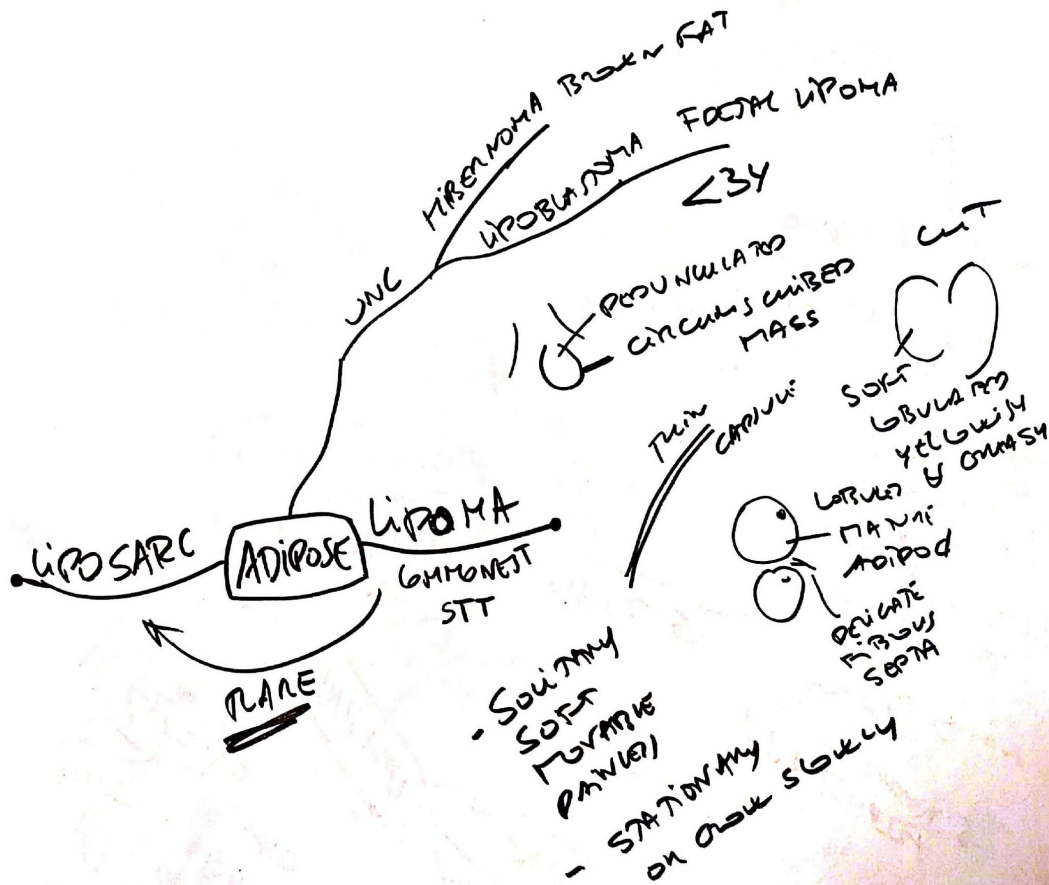 HIBERNOMA BROWN FAT
LIPOBLASTOMA FOETAL LIPOMA
<3Y
UNC
PEDUNCULATED
CIRCUMSCRIBED
MASS
CUT
SOFT
LOBULATED
YELLOWISH
& GREASY
THIN CAPSULE
LOBULES
MATURE
ADIPOC
DELICATE
FIBROUS
SEPTA
LIPOSARC
ADIPOSE
LIPOMA
COMMONEST
STT
RARE
- SOLITARY
SOFT
MOVABLE
PAINLESS
- STATIONARY
OR GROW SLOWLY